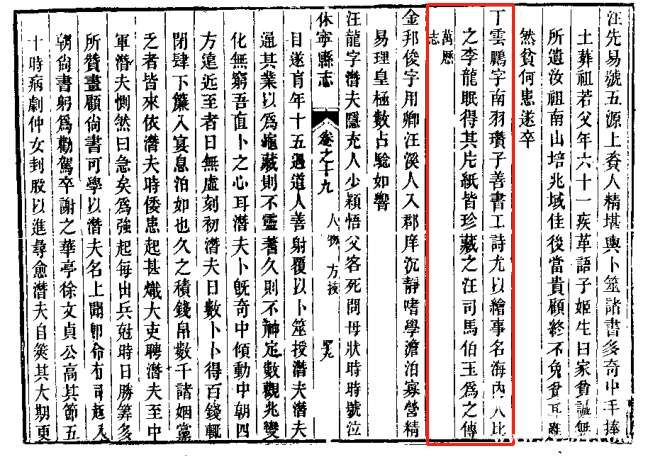 汪先易號五源上資人精堪輿卜筮諸書多奇中手捧
土葬祖若父年六十一疾革語子姬生曰家貧誠無
所遺汝祖南山培兆域佳後當貴顧終不免貧耳雖
然貧何患遂卒
丁雲鵬字南羽瓚子善書工詩尤以繪事名海內人比
之李龍眠得其片紙皆珍藏之汪司馬伯玉為之傳
萬曆
志
金邦俊字用卿汪溪人入郡庠沉靜嗜學澹泊寡營精
易理皇極數占驗如響
汪龍字潛夫隱充人少穎悟父客死問母狀時時號泣
休寧縣志
卷之十九
人物
方技
目遂盲年十五過道人善射覆以卜筮授潛夫潛夫
通其業以為龜藏則不靈蓍久則不神定數觀兆變
化無窮吾直卜之心耳潛夫卜既奇中傾動中朝四
方遠近至者日無虛刻初潛夫日數卜卜得百錢輒
閉肆下簾入宴息泊如也久之積錢帛數千諸姻黨
乏者皆來依潛夫時倭患起甚熾大吏聘潛夫至中
軍潛夫惻然曰急矣為強起每出兵尅時日勝筭多
所贊畫顧尚書可學以潛夫名上聞即命有司趣入
朝尚書躬為勸駕卒謝之華亭徐文貞公高其節五
十時病劇仲女刲股以進尋愈潛夫自筴其大期更